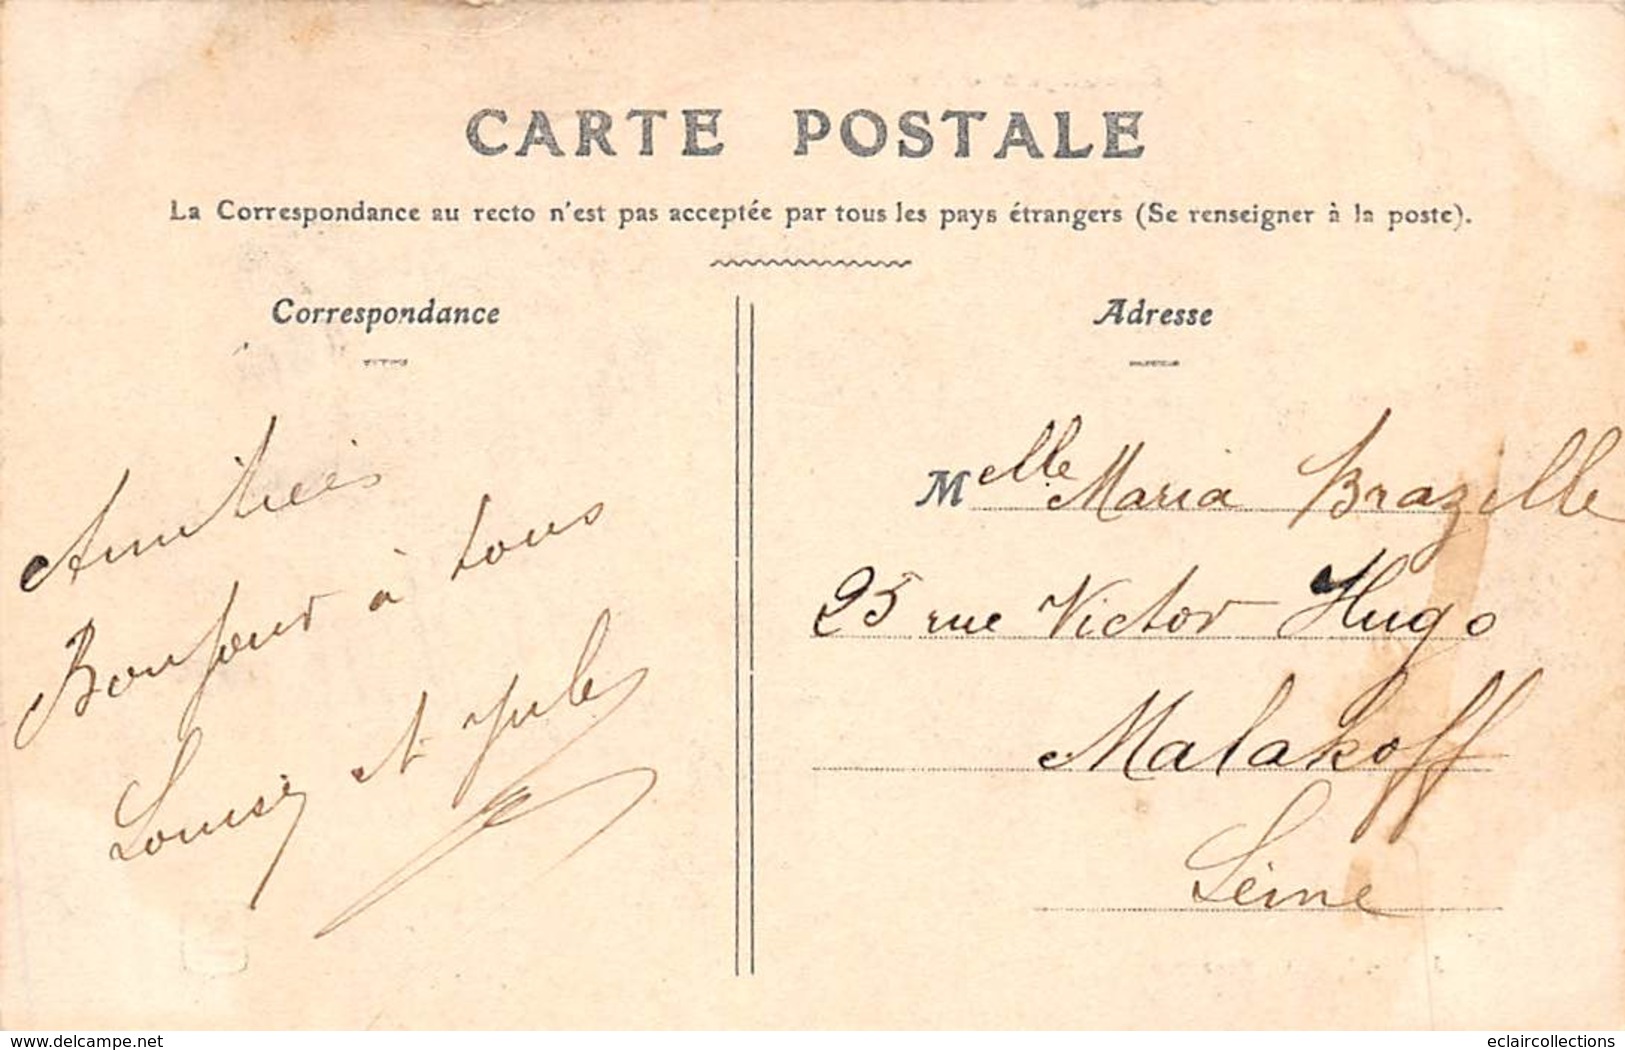 CARTE POSTALE
La Correspondance au recto n'est pas acceptée par tous les pays étrangers (Se renseigner à la poste).
Correspondance
Amitiés
Bonjour à tous
Louise et Jules
Adresse
Melle Maria Brazille
25 rue Victor Hugo
Malakoff
Seine
www.delcampe.net
eclaircollections